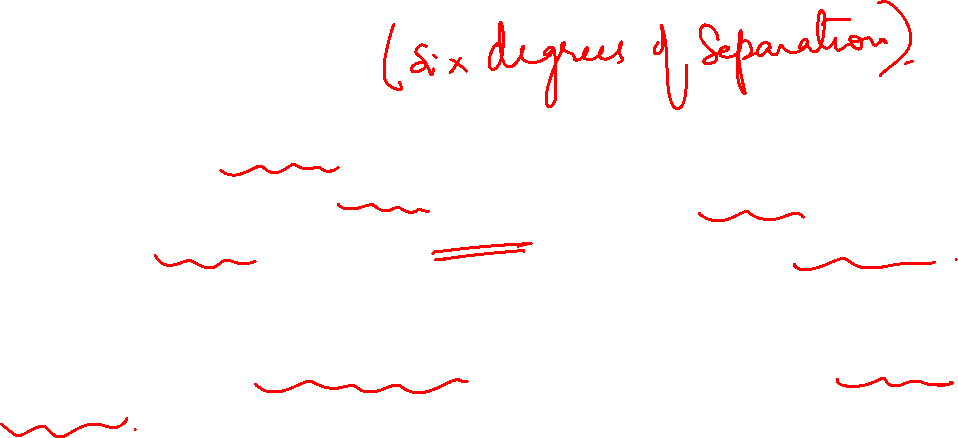 (six degrees of Separation).